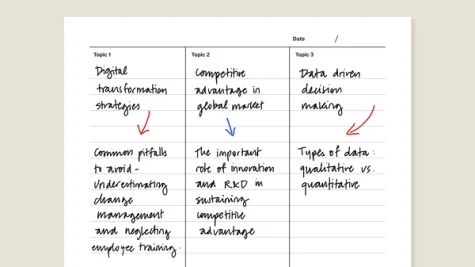 Date /
Topic 1
Digital
transformation
strategies
Common pitfalls
to avoid-
Underestimating
change
management
and neglecting
employee training.
Topic 2
Competitive
advantage in
global market
The important
role of innovation
and R&D in
sustaining
competitive
advantage
Topic 3
Data driven
decision
making
Types of data:
qualitative vs.
quantitative